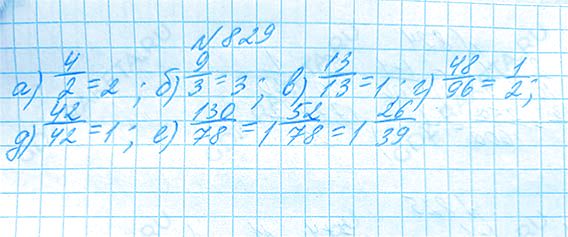 №829
а) 4/2 = 2 ; б) 9/3 = 3 ; в) 13/13 = 1 ; г) 48/96 = 1/2 ;
д) 42/42 = 1 ; е) 130/78 = 1 52/78 = 1 26/39